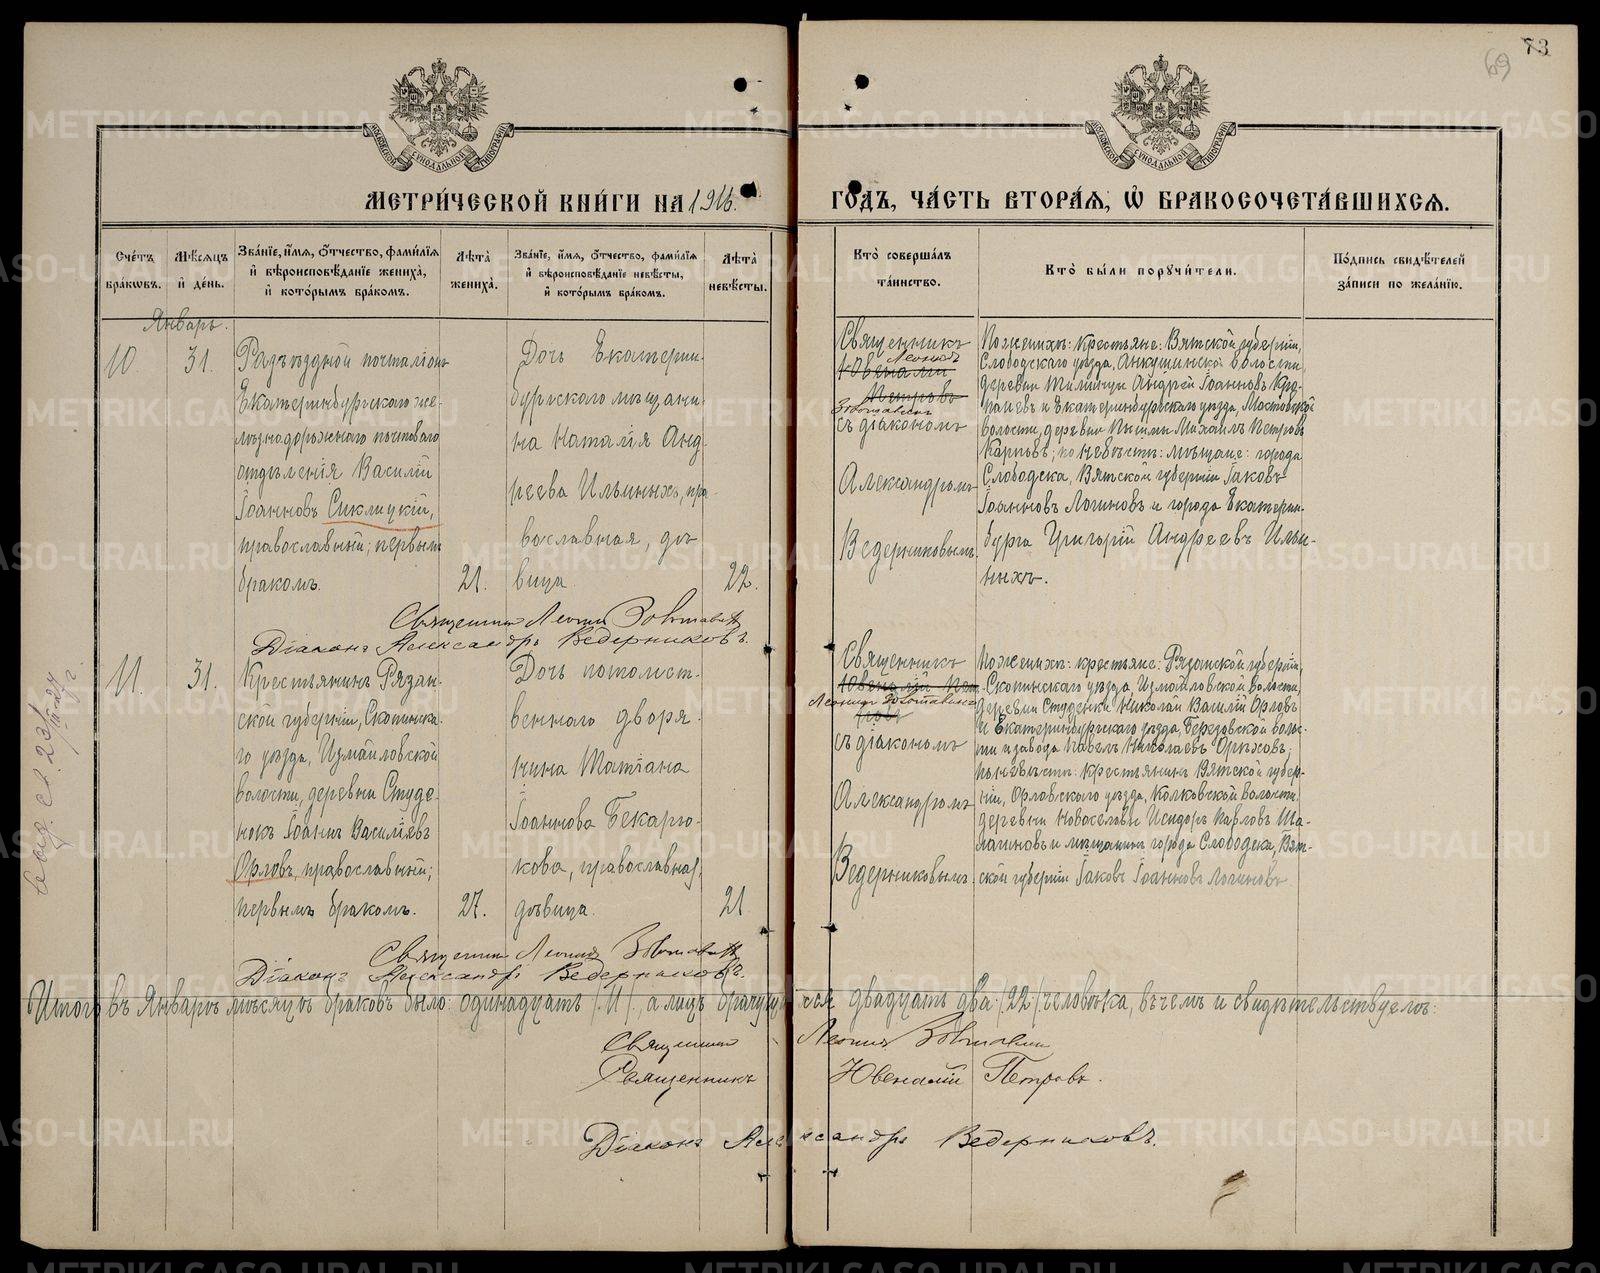 73
69
МЕТРИ́ЧЕСКОЙ КНИ́ГИ НА 1916.
ГОДЪ, ЧА́СТЬ ВТОРА́Я, Ѡ҆ БРАКОСОЧЕТА́ВШИХСЯ.
МОСКОВСКОЙ СѴНОДАЛЬНОЙ ТИПОГРАФІИ
МОСКОВСКОЙ СѴНОДАЛЬНОЙ ТИПОГРАФІИ
Сче́тъ бра́кѡвъ.
Мѣ́сѧцъ и҆ де́нь.
Зва́нїе, и҆́мѧ, ѻ҆́тчество, фами́лїѧ и҆ вѣроисповѣ́данїе жениха̀, и҆ кото́рымъ бра́комъ.
Лѣ́та жениха̀.
Зва́нїе, и҆́мѧ, ѻ҆́тчество, фами́лїѧ и҆ вѣроисповѣ́данїе невѣ́сты, и҆ кото́рымъ бра́комъ.
Лѣ́та невѣ́сты.
Кто̀ соверша́лъ та́инство.
Кто̀ бы́ли порꙋчи́тели.
По́дпись свидѣ́телей за́писи по жела́нїю.
Январь.
10.
31.
Разъѣздной почталіонъ
Екатеринбургскаго же-
лѣзнодорожнаго почтоваго
отдѣленія Василій
Іоанновъ Сиклицкій,
православный; первымъ
бракомъ.
21.
Дочь Екатерин-
бургскаго мѣщани-
на Наталія Анд-
реева Ильиныхъ, пра-
вославная, дѣ-
вица.
22.
Священникъ
Леонидъ
Ювеналій
Петровъ
съ діакономъ
Александромъ
Ведерниковымъ.
По женихѣ: крестьяне: Вятской губерніи,
Слободского уѣзда,
Іоанновъ
и Екатеринбургскаго уѣзда,
волости, деревни Пышмы Михаилъ Петровъ
Карповъ; по невѣстѣ: мѣщане: города
Слободска, Вятской губерніи Іаковъ
Іоанновъ Логиновъ и города Екатерин-
бурга Григорій Андреевъ Ильи-
ныхъ.
Священникъ Леонидъ
Діаконъ Александръ Ведерниковъ.
11.
31.
Крестьянинъ Рязан-
ской губерніи, Скопинска-
го уѣзда, Измайловской
волости, деревни Студе-
нокъ Іоаннъ Василіевъ
Орловъ, православный;
первымъ бракомъ.
27.
Дочь потомст-
веннаго дворя-
нина Татіана
Іоаннова Бекарю-
кова, православная,
дѣвица.
21
Священникъ
Ювеналій Пет-
Леонидъ
ровъ
съ діакономъ
Александромъ
Ведерниковымъ.
По женихѣ: крестьяне: Рязанской губерніи,
Скопинскаго уѣзда, Измайловской волости,
деревни Студенки Николай Василій Орловъ
и Екатеринбургскаго уѣзда, Березовской волос-
ти и завода Павелъ Николаевъ Орѣховъ;
по невѣстѣ: крестьянинъ Вятской губер-
ніи, Орловскаго уѣзда, волости,
деревни Исидоръ Павловъ Ша-
лагиновъ и мѣщанинъ города Слободска, Вят-
ской губерніи Іаковъ Іоанновъ Логиновъ
Священникъ Леонидъ
Діаконъ Александръ Ведерниковъ.
Итого въ Январѣ мѣсяцѣ браковъ было: одинадцать /11/, а лицъ брачущихся двадцать два /22/ человѣка, въ чемъ и свидѣтельствуемъ:
Священникъ Леонидъ
Священникъ Ювеналій Петровъ.
Діаконъ Александръ Ведерниковъ.
METRIKI.GASO-URAL.RU